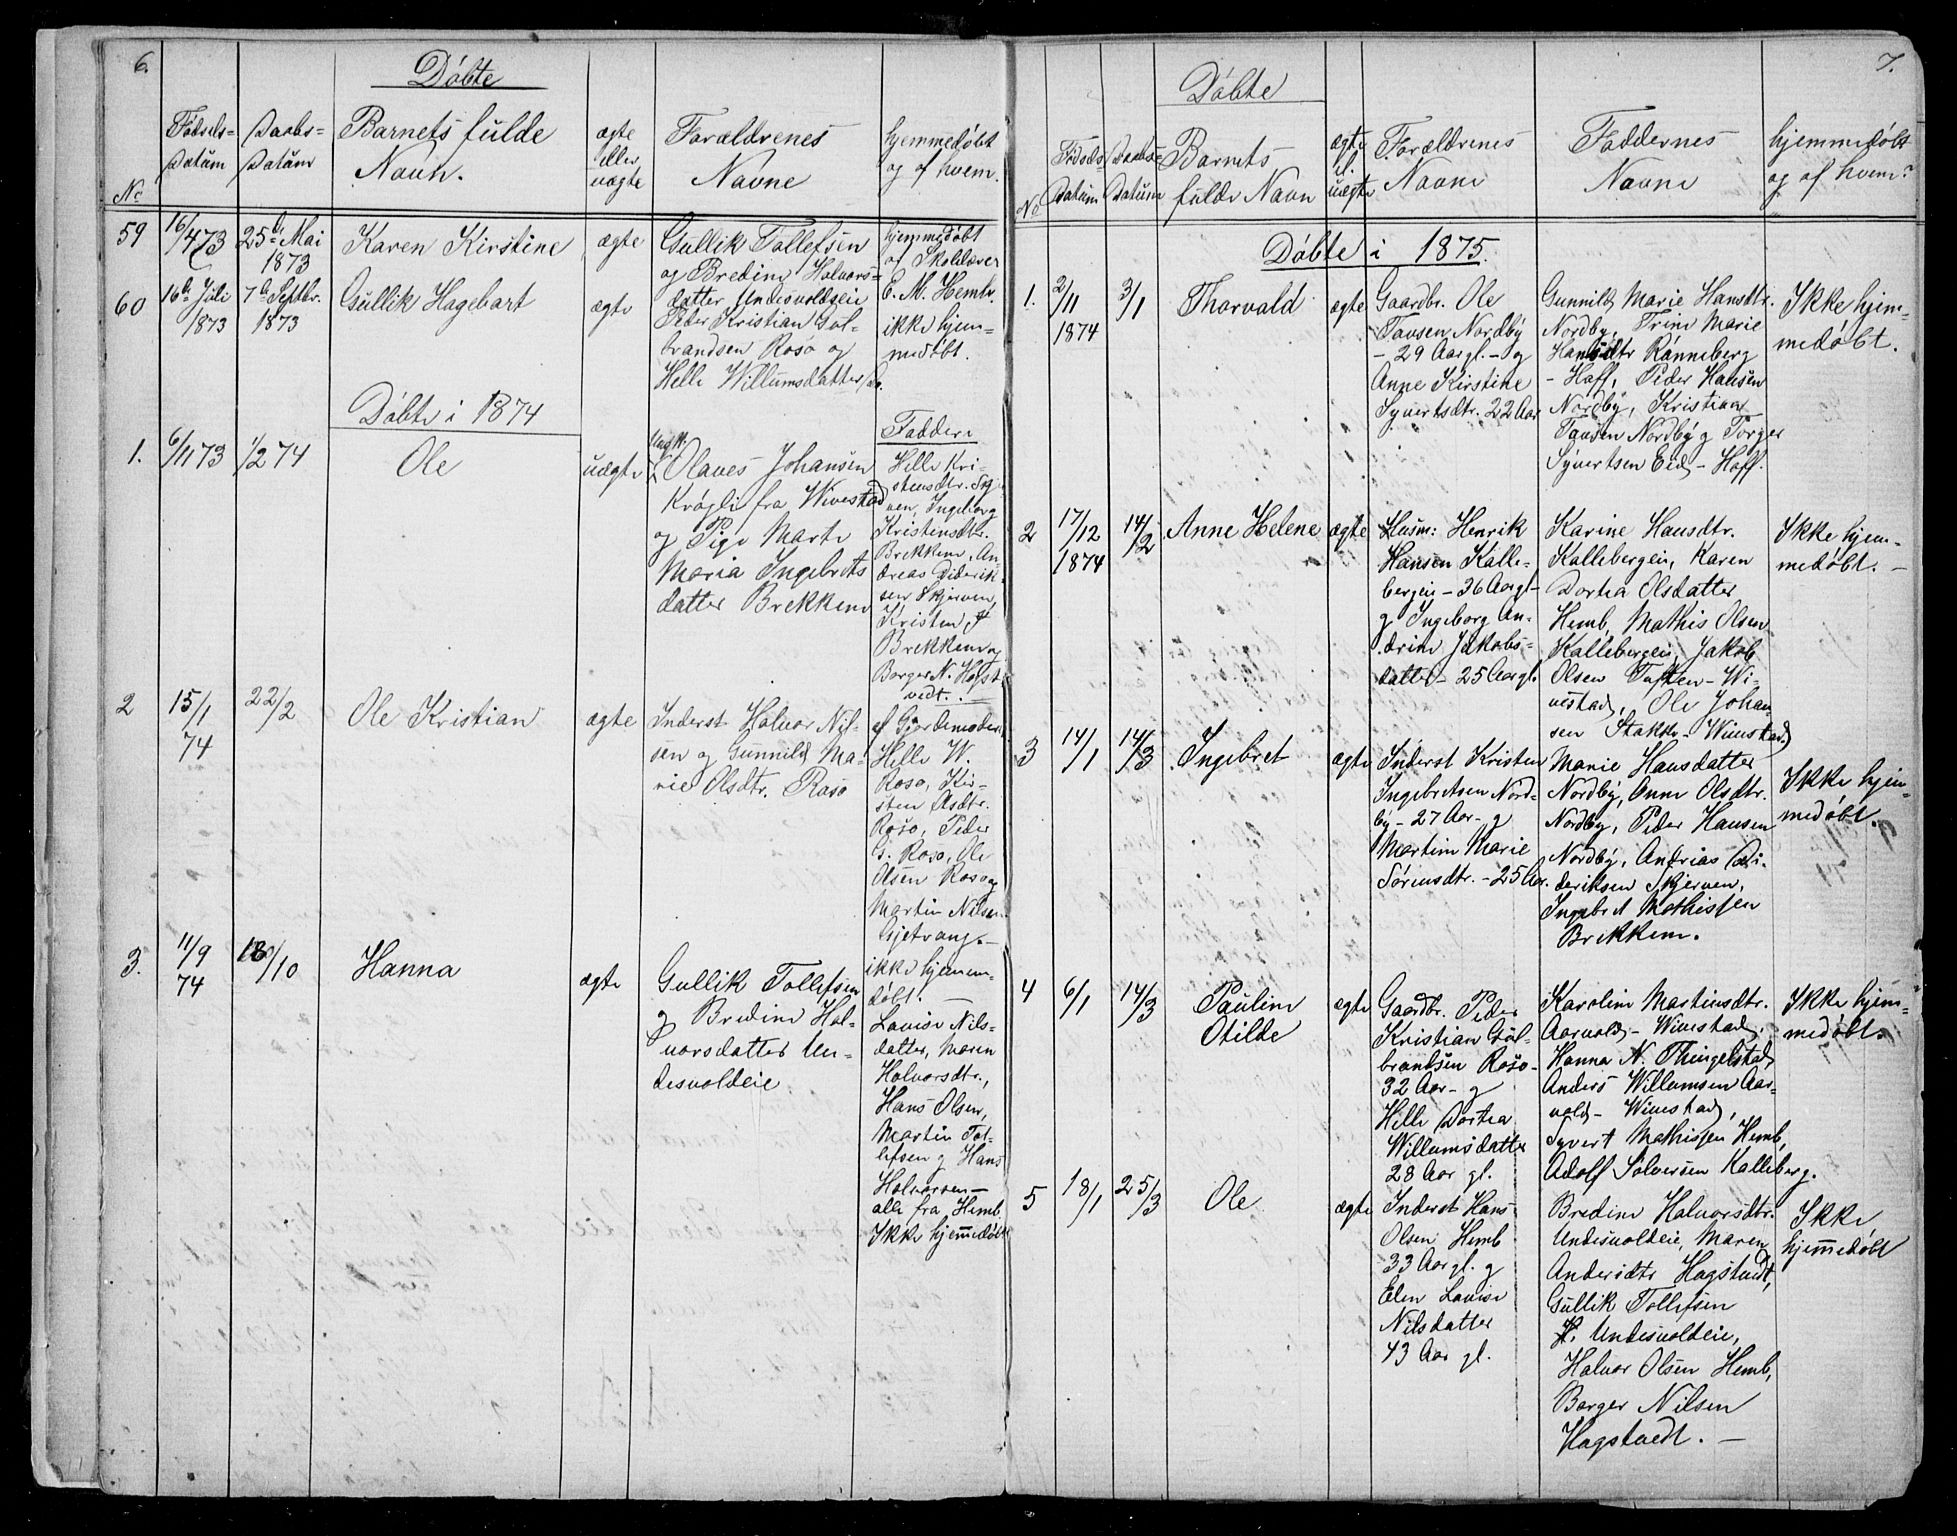 6.
Döbte
No
Födsels-
Datum
Daabs-
Datum
Barnets fulde
Navn.
ægte
eller
uægte
Forældrenes
Navne
hjemmedöbt
og af hvem.
59
16/4 73
25de Mai
1873
Karen Kirstine
ægte
Gullik Tollefsen
og Bredine Halvors-
datter Undesvoldseie
hjemmedöbt
af Skolelærer
C. M. Hemb.
60
16de Juli
1873
7de Septbr.
1873
Gullik Hagebart
ægte
Peder Kristian Gul-
brandsen Rosö og
Helle Willumsdatter
ikke hjem-
medöbt.
Döbte i 1874
1.
6/11 73
1/2 74
Ole
uægte
Olaves Johansen
Krøgli fra Wivestad
og Pige Marte
Maria Ingebrets
datter Brekkene
Faddere
Helle Kri-
stensdtr. Skjer-
ven, Ingeborg
Kristensdtr.
Brekkene, An-
dreas Diderik-
sen Skjerven,
Kristen
Brekkene og
Borger N. Hogst-
vedt. –
2
15/1
74
22/2
Ole Kristian
ægte
Inderst Halvor Nil-
sen og Gunnild Ma-
rie Olsdtr. Rosö
af Gjordemoder
Helle W.
Roso, Kir-
sten Asdtr.
Roso, Peder
G. Roso, Ole
Olsen Roso og
Martin Nilsen
Gjetvang. –
3.
11/9
74
18/10
Hanna
ægte
Gullik Tollefsen
og Bredine Hal-
vorsdatter Un-
desvoldeie
ikke hjemme-
döbt.
Lovise Nils-
datter, Maren
Halvorsdtr.,
Hans Olsen,
Martin Tol-
lefsen og Hans
Halvorsen –
alle fra Hemb
Ikke hjemmedöbt
7.
Döbte
No
Födsels-
Datum
Daabs-
Datum
Barnets
fulde Navn
ægte
el.
uægte
Forældrenes
Navne
Faddernes
Navne
hjemmedöbt
og af hvem?
Döbte i 1875.
1.
2/11
1874
3/1
Thorvald
ægte
Gaardbr. Ole
Tovsen Nordby
– 29 Aar gl. – og
Anne Kirstine
Syvertsdtr. 22 Aar
Gunnild Marie Hansdtr.
Nordby, Trine Marie
Hansdtr Rønneberg
– Hoff, Peder Hansen
Nordby, Kristian
Tovsen Nordby og Torger
Syvertsen Eid – Hoff.
Ikke hjem-
medöbt.
2
17/12
1874
14/2
Anne Helene
ægte
Husm: Henrik
Hansen Kalle-
bergeie – 36 Aar gl –
og Ingeborg An-
drine Jakobs-
datter – 25 Aar gl.
Karine Hansdtr.
Kallebergeie, Karen
Dortea Olsdatter
Hemb, Mathis Olsen
Kallebergeie, Jakob
Olsen Toften – Wi-
vestad, Ole Johan-
sen Stakkr – Wivestad.
Ikke hjem-
medöbt. –
3
14/1
14/3
Ingebret
ægte
Inderst Kristen
Ingebretsen Nord-
by – 27 Aar – og
Martine Marie
Sörensdtr. – 25 Aar.
Marie Hansdatter
Nordby, Anne Olsdtr.
Nordby, Peder Hansen
Nordby, Andreas Di-
deriksen Skjerven,
Ingebret Mathissen
Brekkene.
Ikke hjem-
medöbt.
4
6/1
14/3
Pauline
Otilde
ægte
Gaardbr. Peder
Kristian Gul-
brandsen Rosö –
32 Aar – og
Helle Dortea
Willumsdatter
28 Aar gl.
Karoline Martinsdtr.
Aarvold – Wivestad,
Hanna N. Thingelstad
Anders Willumsen Aar-
vold – Wivestad,
Syvert Mathissen Hemb,
Adolf Sölversen Kalleberg.
Ikke hjem-
medöbt.
5
18/1
25/3
Ole
ægte
Inderst Hans
Olsen Hemb
33 Aar gl. og
Elen Lovise
Nilsdatter
43 Aar gl.
Bredine Halvorsdtr.
Undesvoldeie, Maren
Andersdtr Hogstvedt,
Gullik Tollefsen
Undesvoldeie,
Halvor Olsen Hemb,
Borger Nilsen
Hogstvedt. –
Ikke
hjemmedöbt